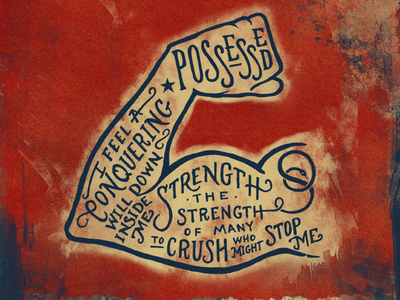 I FEEL A
CONQUERING
WILL DOWN
INSIDE
ME
POSSESSED
STRENGTH
THE
STRENGTH
OF MANY
TO CRUSH WHO MIGHT STOP ME